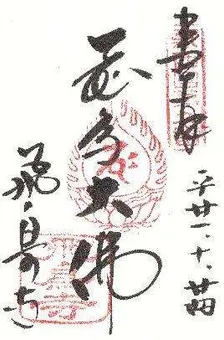 奉拝
平廿一、十、廿四
飛鳥大佛
飛鳥寺